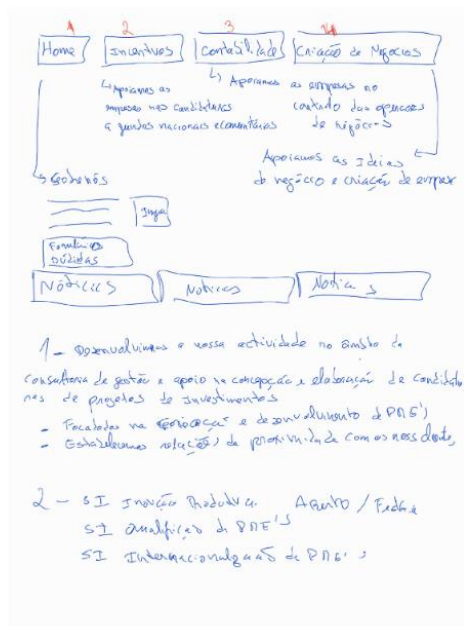 1 2 3 4
Home Incentivos Contabilidade Criação de Negocios
Apoiamos as
empresas nas candidaturas
a fundos nacionais e comunitários
Apoiamos as empresas no
contexto das operações
de negócios
Apoiamos as Ideias
de negócio e criação de empresa
Sobre nós
Formulário
Dúvidas
Nóticias Noticias Noticias
1 - Desenvolvimos a nossa actividade no âmbito da
consultoria de gestão e apoio na concepção e elaboração de candidatu
ras de projetos de Investimentos
- Focadas na e desenvolvimento de PME's
- Estabelecemos relações de proximidade com os noss cliente,
2 - SI Inovação Produtiva Aberto / Fecha
SI Qualificação de PME's
SI Internacionalização de PME's